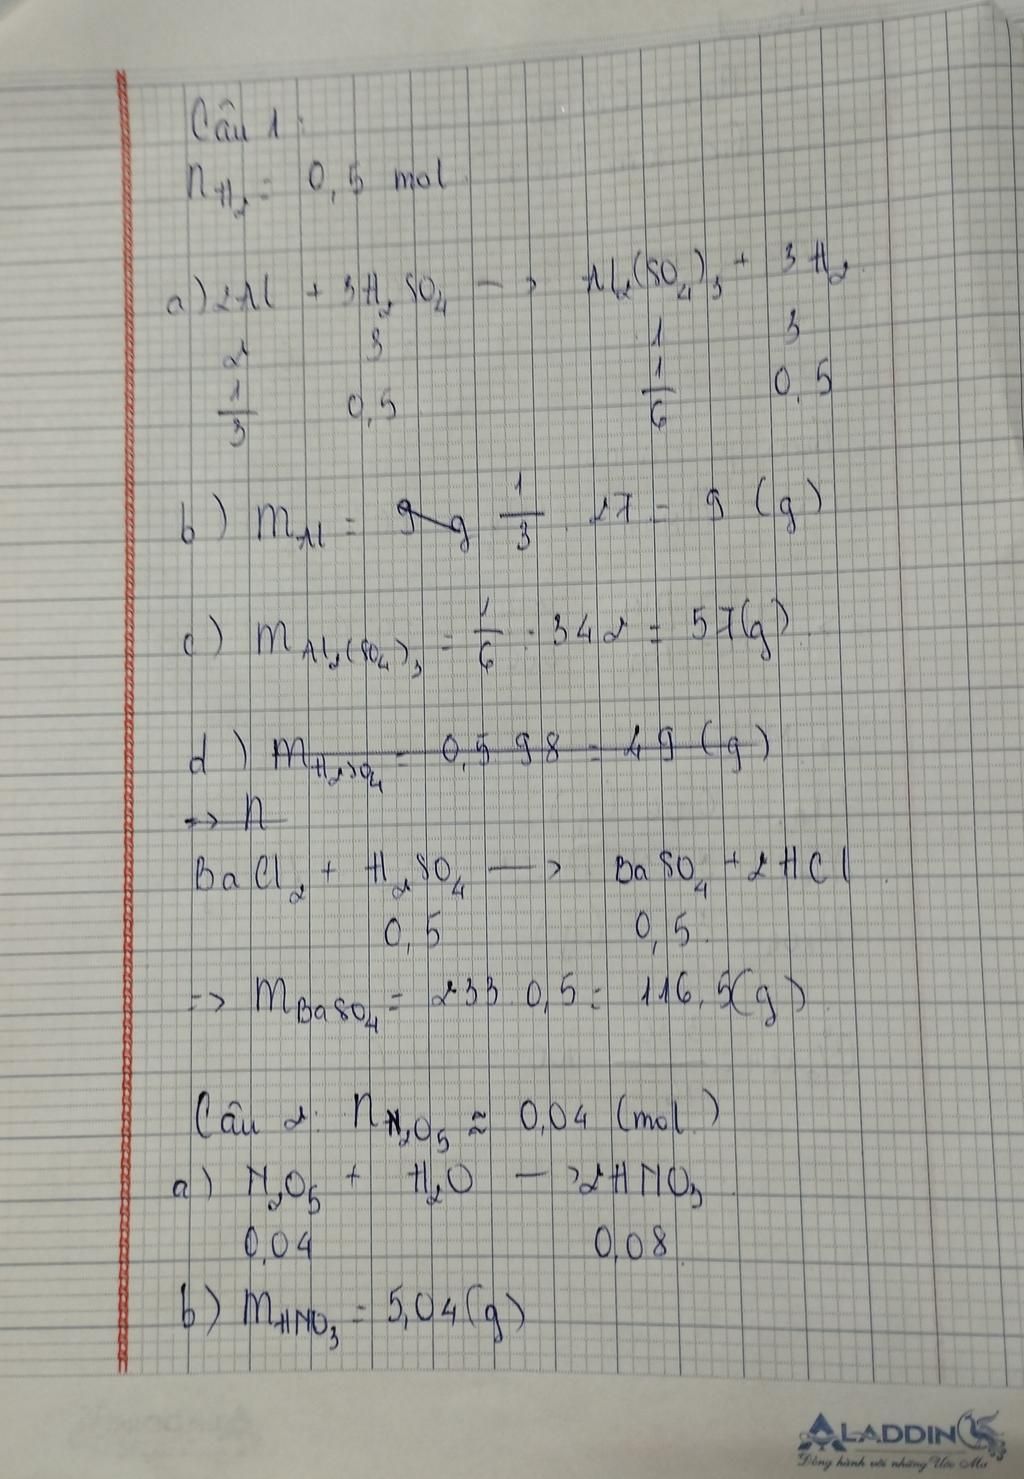 Câu 1:
n H₂ = 0,5 mol
a) 2Al + 3H₂SO₄ → Al₂(SO₄)₃ + 3H₂
2 3 1 3
1/3 0,5 1/6 0,5
b) m Al = 1/3 . 27 = 9 (g)
c) m Al₂(SO₄)₃ = 1/6 . 342 = 57(g)
d) m H₂SO₄ = 0,5 98 = 49 (g)
=> n
BaCl₂ + H₂SO₄ → BaSO₄ + 2HCl
0,5 0,5
=> m BaSO₄ = 233 0,5 = 116,5(g)
Câu 2: n N₂O₅ ≈ 0,04 (mol)
a) N₂O₅ + H₂O → 2HNO₃
0,04 0,08
b) m HNO₃ = 5,04(g)
ALADDIN
Đồng hành với những Ước Mơ